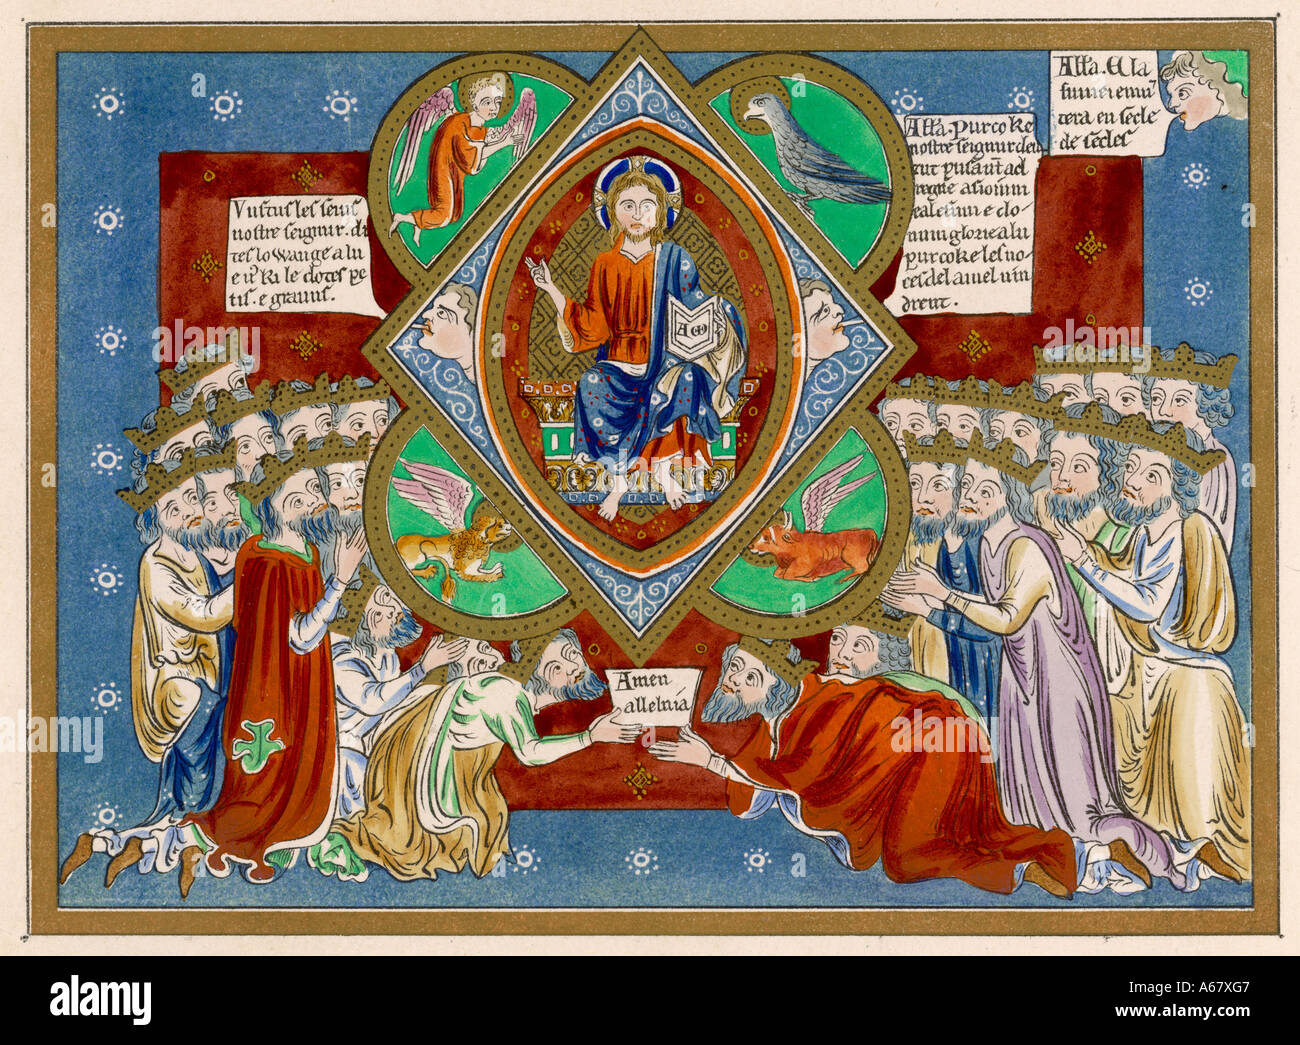 Vustus les seins
nostre seignur. di
tes lo wange a lu
e vus ki le dotes pe
tis. e graunt.
Alfa. purcoke
nostre seignur deu
tut pusant ad
regne asioium
ealeesium e do
num glorie a lu
purcoke les no
ces del aiuel vin
drent.
Alfa. E la
fumeiemū
tera en secle
de secles
Amen
alleluia
A ω
alamy
alamy
Image ID: A67XG7
www.alamy.com